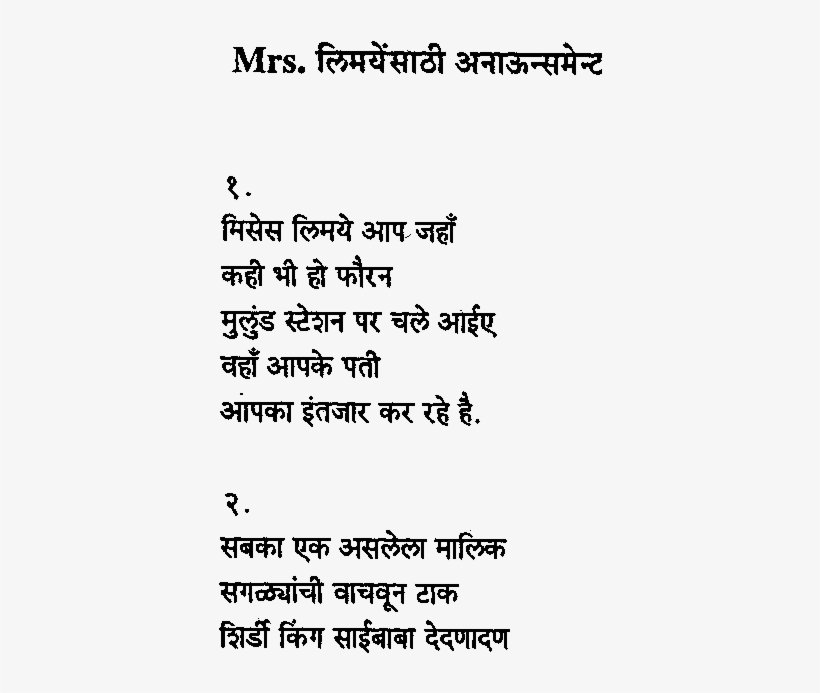 Mrs. लिमयेंसाठी अनाऊन्समेन्ट
१.
मिसेस लिमये आप जहाँ
कही भी हो फौरन
मुलुंड स्टेशन पर चले आईए
वहाँ आपके पती
आपका इंतजार कर रहे है.
२.
सबका एक असलेला मालिक
सगळ्यांची वाचवून टाक
शिर्डी किंग साईबाबा देदणादण